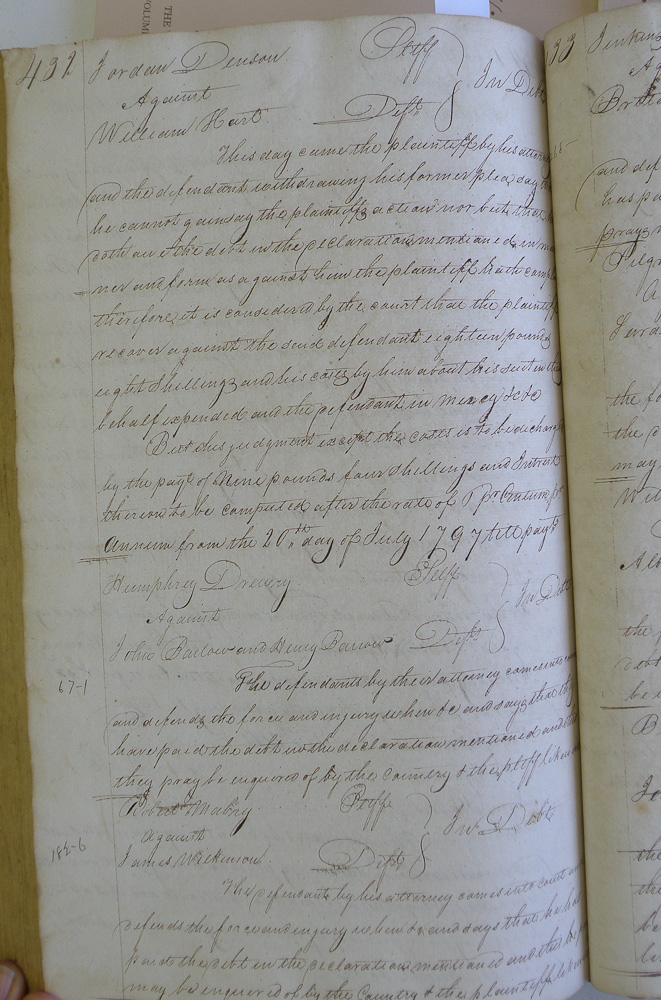 THE
VOLUM
432 Jordan Denson Pltff
Against In Debt
William Hart Deft
This day came the plaintiff by his attorney
and the defendant withdrawing his former plea, day that
he cannot gainsay the plaintiffs action nor but that he
doth owe the debt in the declaration mentioned in man
ner and form as against him the plaintiff hath compl
therefore it is considered by the court that the plaintiff
recover against the said defendant eighteen pounds
eight Shillings and his costs by him about his suit in this
behalf expended and the defendant in mercy &c &c
But this judgment except the costs is to be discharg
by the paymt of Nine pounds four Shillings and Interest
thereon to be computed after the rate of pr Centum pr
Annum from the 20th day of July 1797 till payt
Humphrey Drewry Pltff
Against In Debt
John Barlow and Henry Barlow Defts
67-1
The defendants by their attorney comes into
and defends the force and injury when &c and says that they
have paid the debt in the declaration mentioned and this
they pray be enquired of by the Country & the pltff likewise
Robert Mabry Pltff
Against In Debt
182-6
James Wilkinson Deft
The defendant by his attorney comes into court and
defends the force and injury when &c and says that he has
paid the debt in the declaration mentioned and this he prays
may be enquired of by the Country & the plaintiff likewise
33 Jenkins
Ag
and def
has pa
prays
the fo
the d
may
Wil
the
debt
be
the
the
be